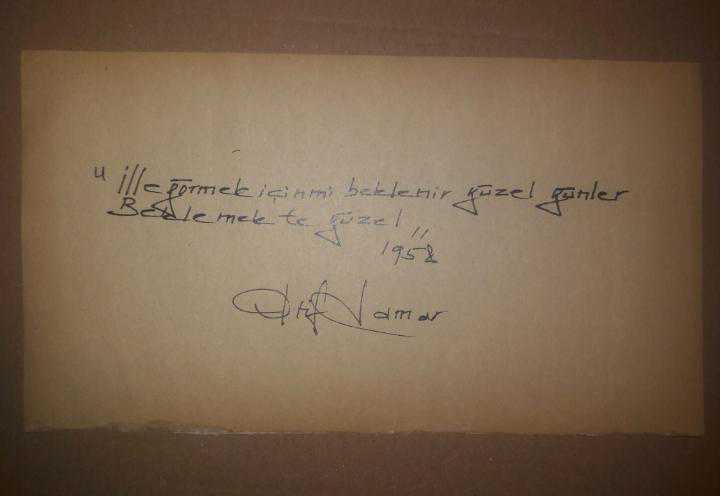 "İlle görmek için mi beklenir güzel günler
Beklemek te güzel"
1958